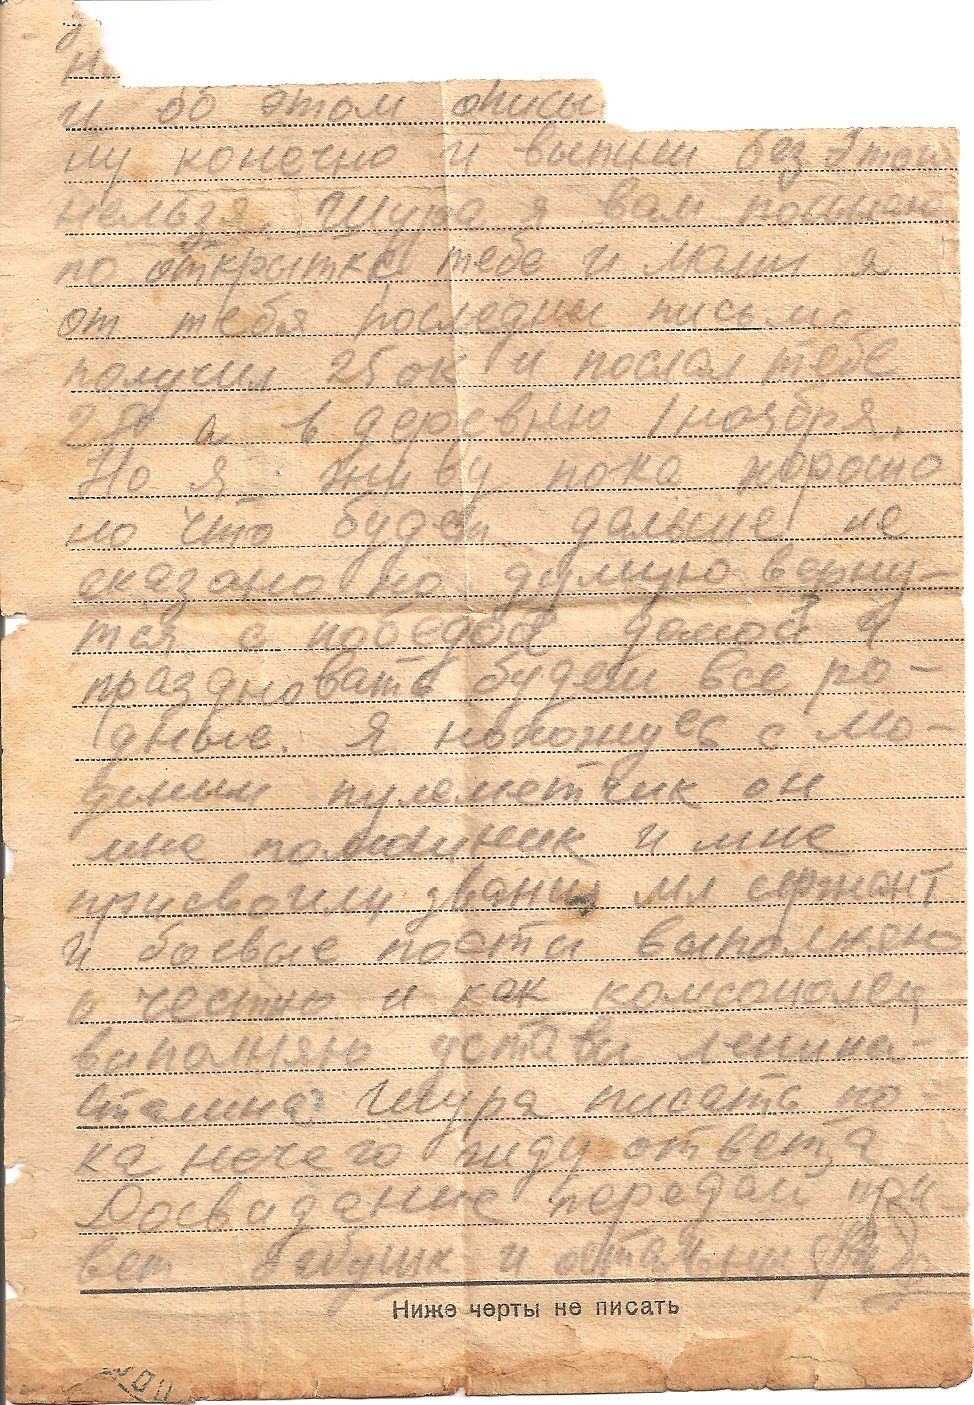 и об этом описы
ну конечно и выпили без этой
нельзя. Шура я вам посылаю
по открытке тебе и мами я
от тебя последны письмо
получил 25 ок и послал тебе
27 а в деревню 1 ноября.
Но я живу пока хорошо
но что будет дальше не
сказано но думую верну-
тся с победой дамой и
праздновать будем все ро-
дные. Я нахожусь с
пулеметчик он
мне и мне
присвоили звания мл сержант
и боевые посты выполняю
и честно и как комсомолец
выполняю уставы ленина-
сталина. Шура писать по-
ка нечего жду ответа
Досвидание передай при
вет бабушк и остальным
Ниже черты не писать